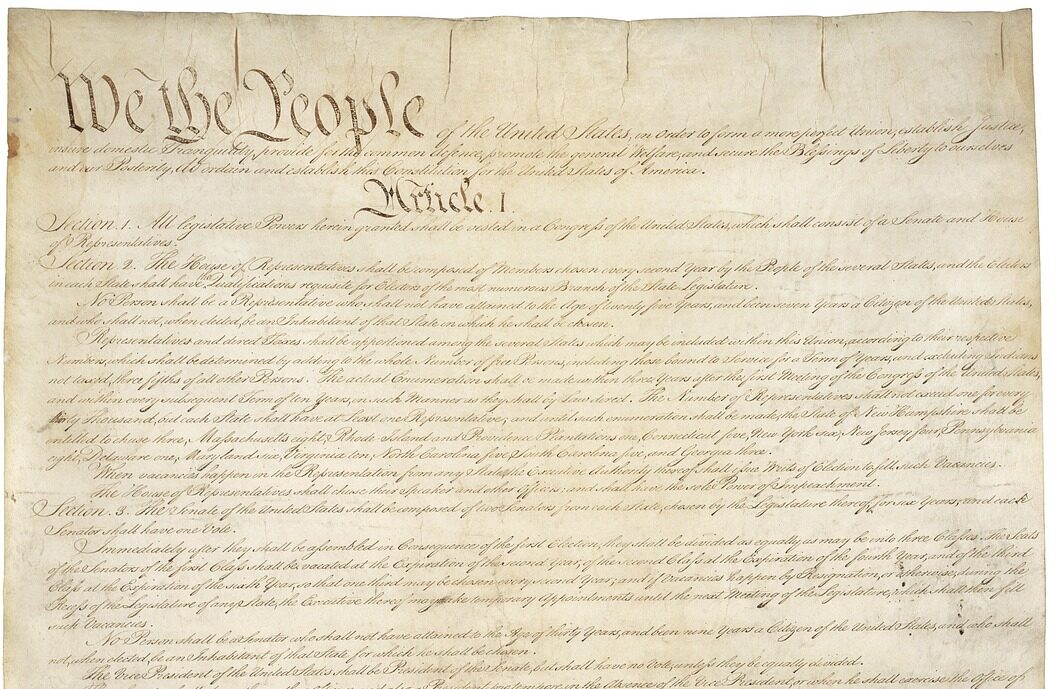 We the People of the United States, in Order to form a more perfect Union, establish Justice,
insure domestic Tranquility, provide for the common defence, promote the general Welfare, and secure the Blessings of Liberty to ourselves
and our Posterity, do ordain and establish this Constitution for the United States of America.
Article. I.
Section. 1. All legislative Powers herein granted shall be vested in a Congress of the United States, which shall consist of a Senate and House
of Representatives.
Section. 2. The House of Representatives shall be composed of Members chosen every second Year by the People of the several States, and the Electors
in each State shall have the Qualifications requisite for Electors of the most numerous Branch of the State Legislature.
No Person shall be a Representative who shall not have attained to the Age of twenty five Years, and been seven Years a Citizen of the United States,
and who shall not, when elected, be an Inhabitant of that State in which he shall be chosen.
Representatives and direct Taxes shall be apportioned among the several States which may be included within this Union, according to their respective
Numbers, which shall be determined by adding to the whole Number of free Persons, including those bound to Service for a Term of Years, and excluding Indians
not taxed, three fifths of all other Persons. The actual Enumeration shall be made within three Years after the first Meeting of the Congress of the United States,
and within every subsequent Term of ten Years, in such Manner as they shall by Law direct. The Number of Representatives shall not exceed one for every
thirty Thousand, but each State shall have at Least one Representative; and until such enumeration shall be made, the State of New Hampshire shall be
entitled to chuse three, Massachusetts eight, Rhode-Island and Providence Plantations one, Connecticut five, New-York six, New Jersey four, Pennsylvania
eight, Delaware one, Maryland six, Virginia ten, North Carolina five, South Carolina five, and Georgia three.
When vacancies happen in the Representation from any State, the Executive Authority thereof shall issue Writs of Election to fill such Vacancies.
The House of Representatives shall chuse their Speaker and other Officers; and shall have the sole Power of Impeachment.
Section. 3. The Senate of the United States shall be composed of two Senators from each State, chosen by the Legislature thereof, for six Years; and each
Senator shall have one Vote.
Immediately after they shall be assembled in Consequence of the first Election, they shall be divided as equally as may be into three Classes. The Seats
of the Senators of the first Class shall be vacated at the Expiration of the second Year, of the second Class at the Expiration of the fourth Year, and of the third
Class at the Expiration of the sixth Year, so that one third may be chosen every second Year; and if Vacancies happen by Resignation, or otherwise, during the
Recess of the Legislature of any State, the Executive thereof may make temporary Appointments until the next Meeting of the Legislature, which shall then fill
such Vacancies.
No Person shall be a Senator who shall not have attained to the Age of thirty Years, and been nine Years a Citizen of the United States, and who shall
not, when elected, be an Inhabitant of that State for which he shall be chosen.
The Vice President of the United States shall be President of the Senate, but shall have no Vote, unless they be equally divided.
pro tempore, in the Absence of the Vice President, or when he shall exercise the Office of